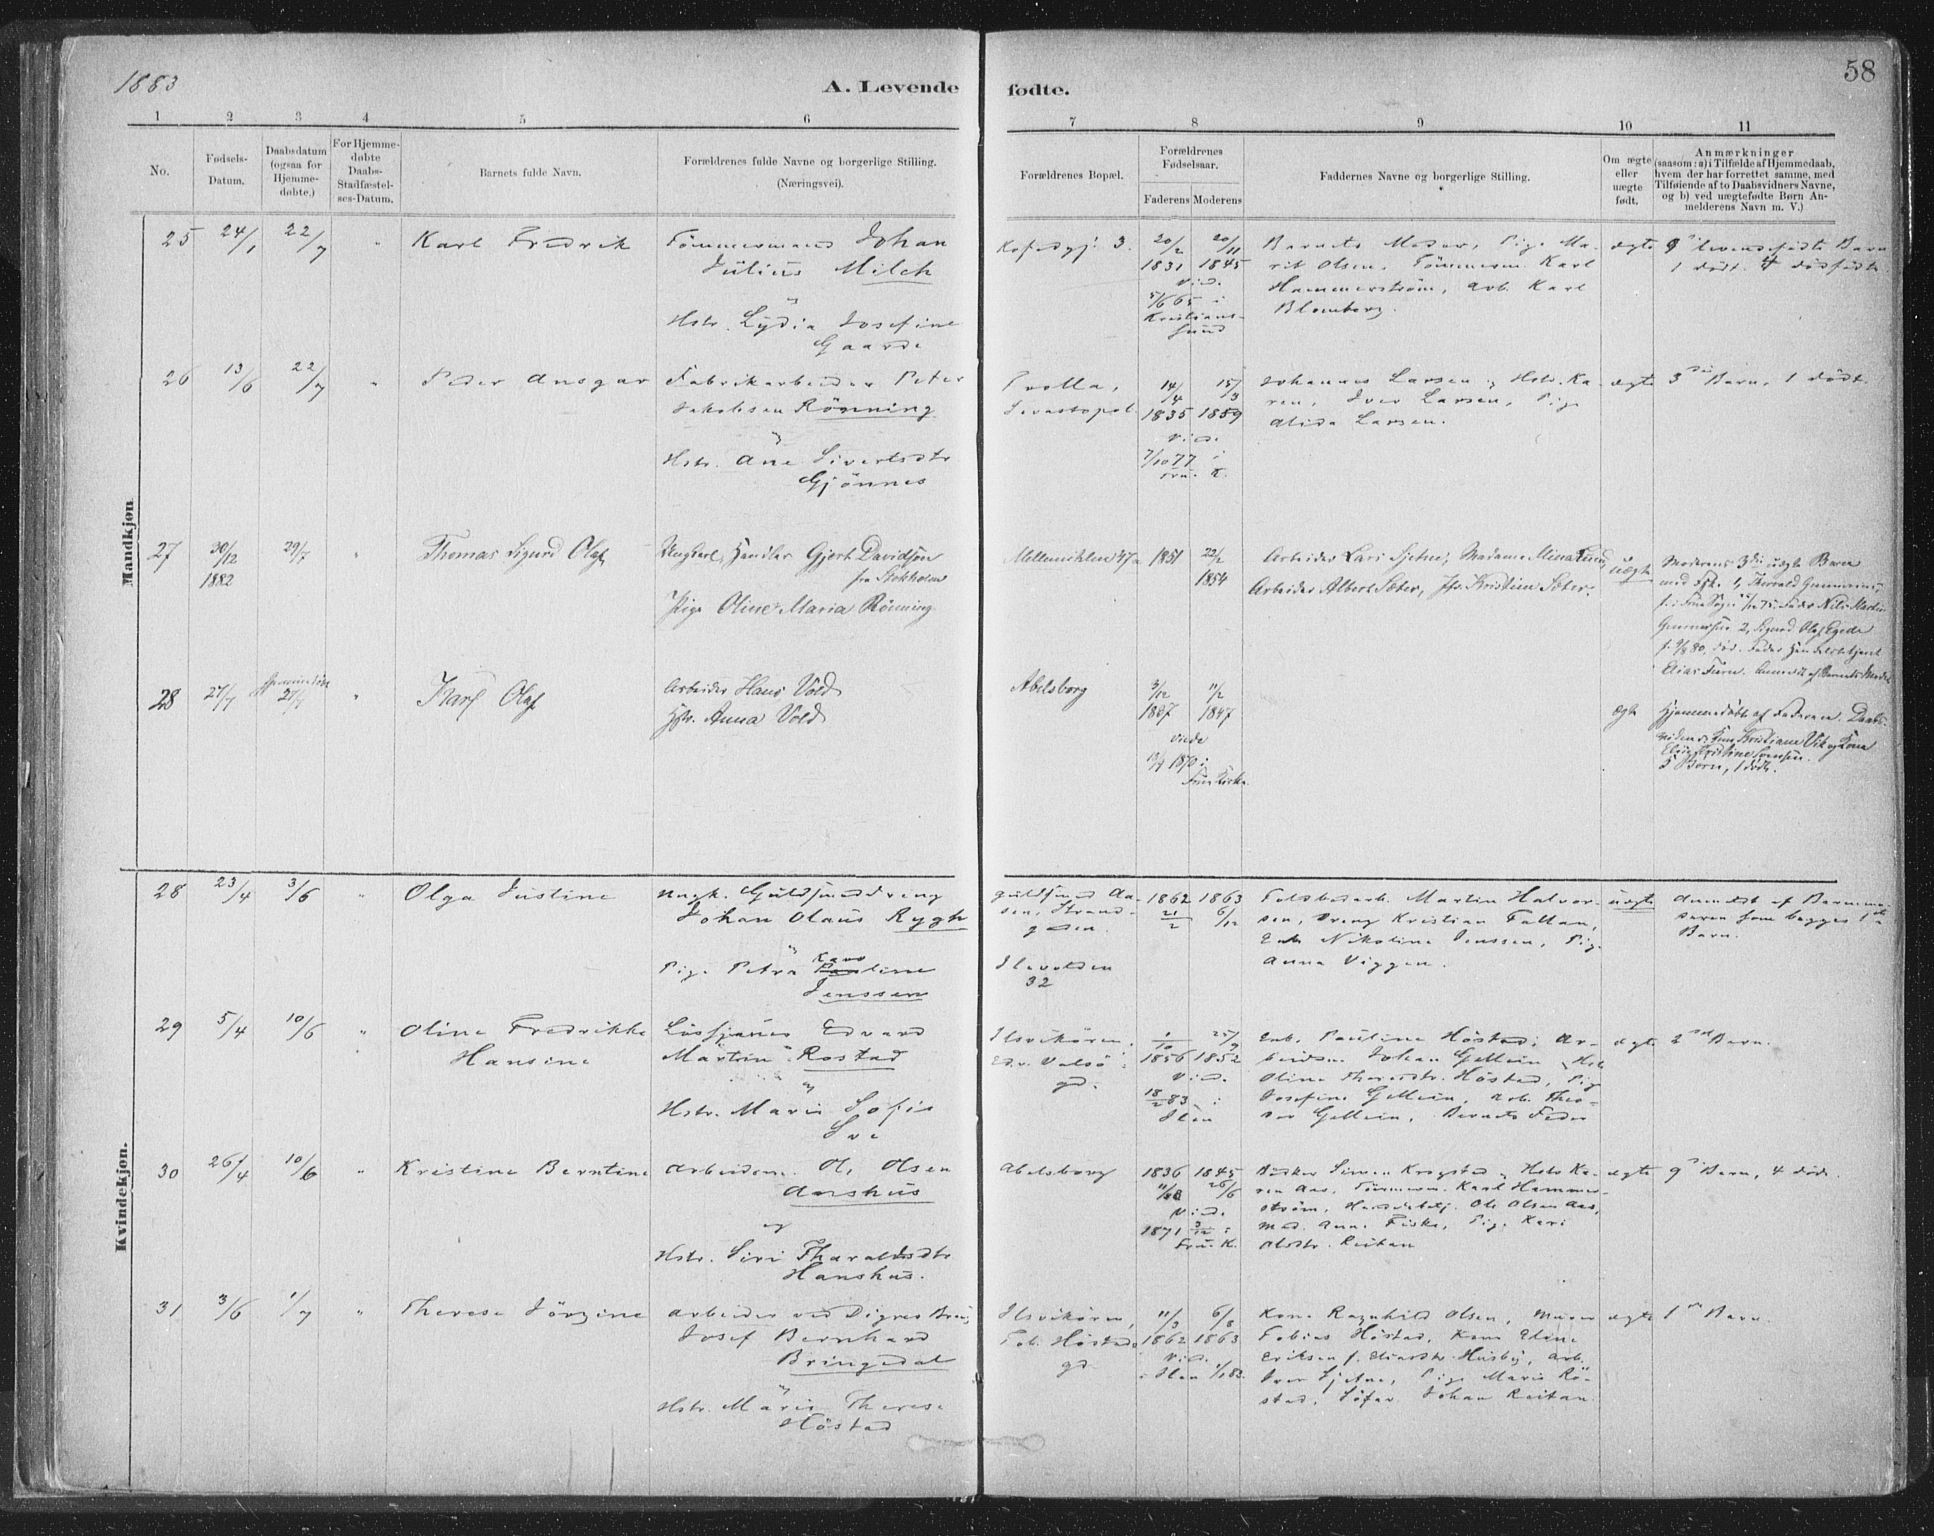 1883
A. Levende
fødte.
58
1 2 3 4 5 6 7 8 9 10 11
No.
Fødsels-
Datum.
Daabsdatum
(ogsaa for
Hjemme-
døbte.)
For Hjemme-
døbte
Daabs-
Stadfæstel-
ses-Datum.
Barnets fulde Navn.
Forældrenes fulde Navne og borgerlige Stilling.
(Næringsvei).
Forældrenes Bopæl.
Forældrenes
Fødselsaar.
Faderens Moderens
Faddernes Navne og borgerlige Stilling.
Om ægte
eller
uægte
født.
Anmærkninger
(saasom: a) i Tilfælde af Hjemmedaab,
hvem der har forrettet samme, med
Tilføiende af to Daabsvidners Navne,
og b) ved uægtefødte Børn An-
melderens Navn m. V.)
Mandkjøn
25 24/1 22/7 " Karl Fredrik
Tömmermand Johan
Julius Milch
&
Hstr. Lydia Josefine
Gaarde
3.
20/2 20/11
1831 1845
vid.
5/6 65 i
Kristians-
sund
Barnets Moder, Pige Ma-
rit Olsen, Tömmerm. Karl
Hammerström, Arb. Karl
Blomberg.
ægte
levendefödte Barn
1 dödt. 4 dödfödte
26 13/6 22/7 " Peder Ansgar
Fabrikarbeider Peter
Jakobsen Rönning
&
Hstr. Ane Sivertsdtr
Gjönnes
Trolla,
Sevastopol
14/4 15/3
1835 1859
vid.
7/10 77 i
Fru. K.
Johannes Larsen & Hstr. Ka-
ren, Iver Larsen, Pige
Alida Larsen.
ægte
3die Barn, 1 dödt.
27 30/12 29/7 " Thomas Sigurd Olaf
1882
Ungkarl, Handler Gjert Davidsen
fra Stokholm
Pige Oline Maria Rönning
Mellemihlen 47a
1851 22/2
1854
Arbeider Lars Sjetne, Madame Mina Lund,
Arbeider Albert Sæter, Jfr. Kristine Sæter.
uægte
Moderens 3die uægte Barn
28 27/7 Hjemmedøbt 27/7 " Karl Olaf
Arbeider Hans Vold
Hstr. Anna Vold
Abelsborg
3/12 11/2
1837 1847
viede
1870 i
Frue Kirke.
ægte
Hjemmedøbt af Faderen. Daabs-
5 Børn, 1 dödt.
Kvindekjøn.
28 23/4 3/6 " Olga Justine
Ungk. Guldsmeddreng
Johan Olaus Rygh
&
Pige Petra Karoline
Jenssen
Guldsmed Aa-
sen, Strand-
gaden.
Ilevolden
32
1862 1863
21/2 6/12
Toldbodarb. Martin Halvor-
sen, Dreng Kristian Fallan,
Enke Nikoline Jenssen, Pige
Anna Viggen.
uægte
Anmeldt af Barnemo-
deren som begges 1ste
Barn.
29 5/4 10/6 " Oline Fredrikke
Hansine
Lössjauer Edvard
Martin Rostad
&
Hstr. Marie Sofie
Sve
Ilsvikören,
Edv. Valsö
gd.
1/10 25/9
1856 1852
vid.
18/2 83 i
Ilen
Enke Pauline Höstad, Ar-
beidsm. Johan Gellein & Hstr
Oline Tharaldsdtr. Höstad, Pige
Josefine Gellein, Arb. Theo-
dor Gellein, Barnets Fader
ægte
2det Barn.
30 26/4 10/6 " Kristine Berntine
Arbeidsm. Ole Olsen
Aarshus
&
Hstr. Siri Tharaldsdtr
Hanshus.
Abelsborg
1836 1845
11/8 26/6
vid.
1871 3/12 i
Fru. K.
Bödker Simen Krogstad & Hstr. Ka-
ren Aas, Tömmerm. Karl Hammer-
ström, Ole Olsen Aas,
Mad. Anne Fiske, Pige Kari
Olsdtr. Reitan
ægte
9de Barn, 4 döde.
31 3/6 1/7 " Therese Jörgine
Arbeider ved Digres Brug
Josef Bernhard
Bringedal
&
Hstr. Marie Therese
Höstad
Ilsvikören,
Tob. Höstads
gd.
11/3 6/8
1862 1863
vid.
i Ilen 1/1 83.
Kone Ragnhild Olsen, Murer
Tobias Höstad, Kone Eline
Eriksen f. Husby, Arb.
Iver Sjetne, Pige Marie Rö-
stad, Söfar. Johan Reitan.
ægte
1ste Barn.